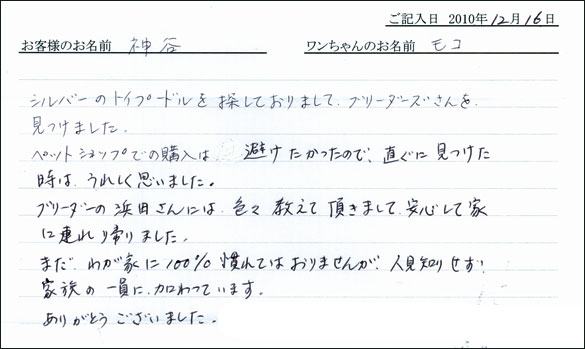 ご記入日 2010年12月16日
お客様のお名前 神谷 ワンちゃんのお名前 モコ
シルバーのトイプードルを探しておりまして、ブリーダーズさんを
見つけました。
ペットショップでの購入は 避けたかったので、直ぐに見つけた
時は、うれしく思いました。
ブリーダーの浜田さんには、色々教えて頂きまして、安心して家
に連れ帰りました。
まだ、わが家に100%慣れてはおりませんが、人見知りせず、
家族の一員に、加わっています。
ありがとうございました。